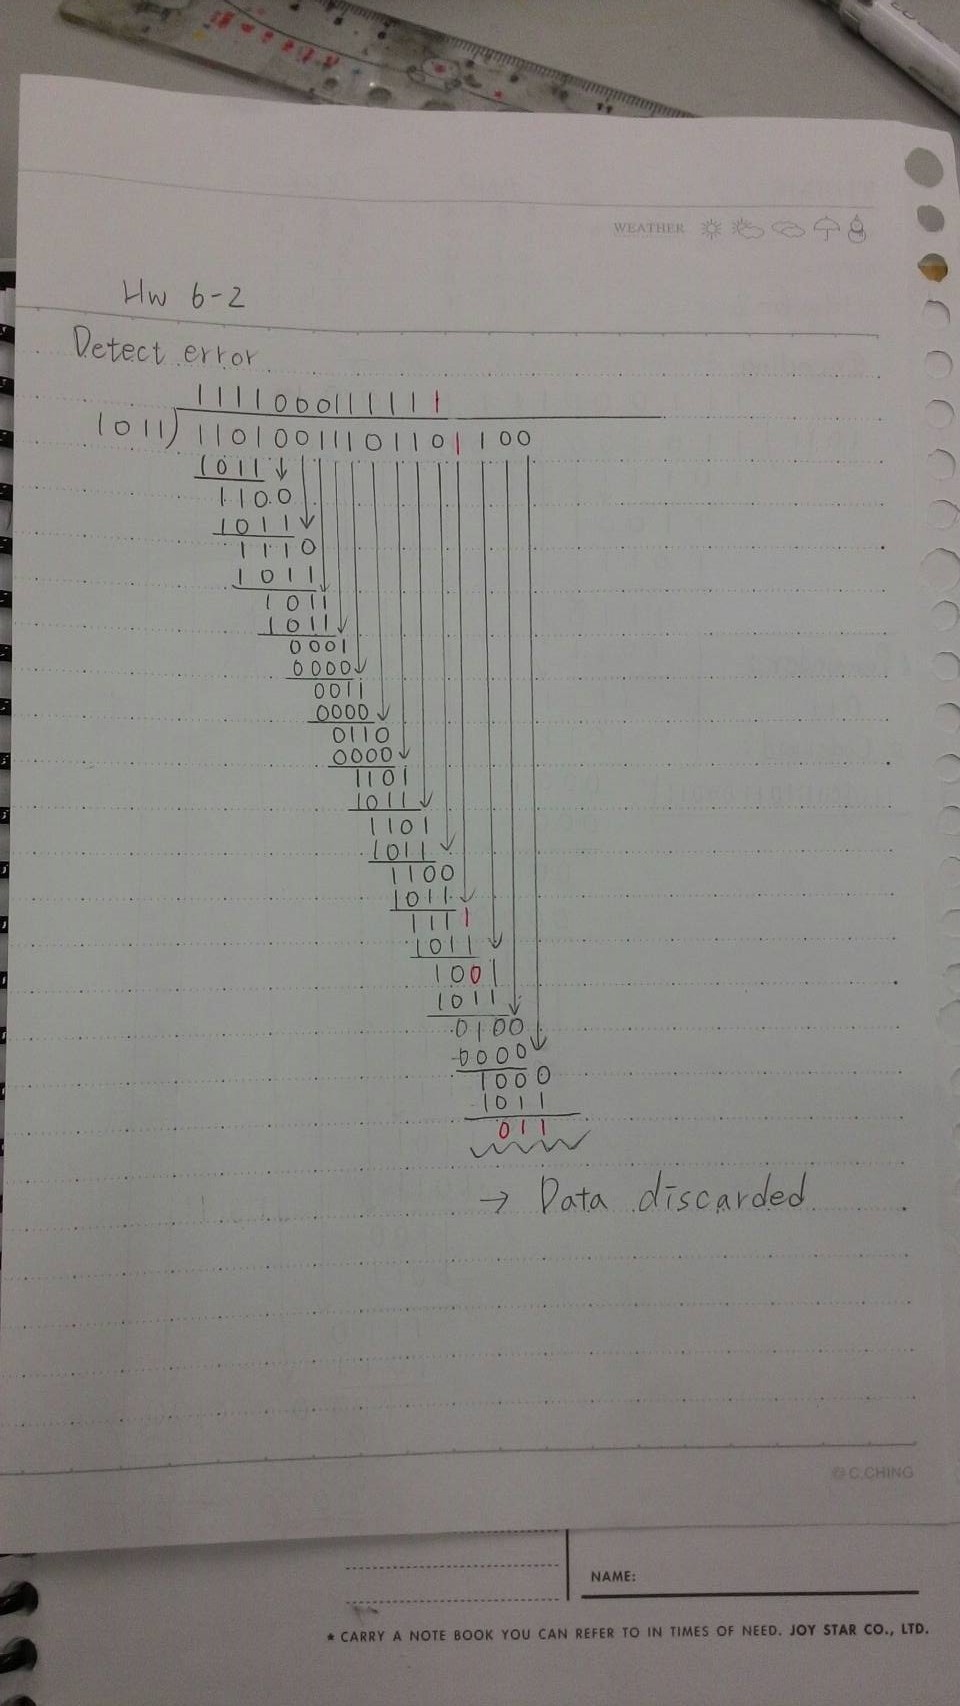 WEATHER
Hw 6-2
Detect error
1111000111111
1011)11010011101101100
1011
1100
1011
1110
1011
1011
1011
0001
0000
0011
0000
0110
0000
1101
1011
1101
1011
1100
1011
1111
1011
1001
1011
0100
0000
1000
1011
011
→ Data discarded
©C.CHING
NAME:
★ CARRY A NOTE BOOK YOU CAN REFER TO IN TIMES OF NEED. JOY STAR CO., LTD.